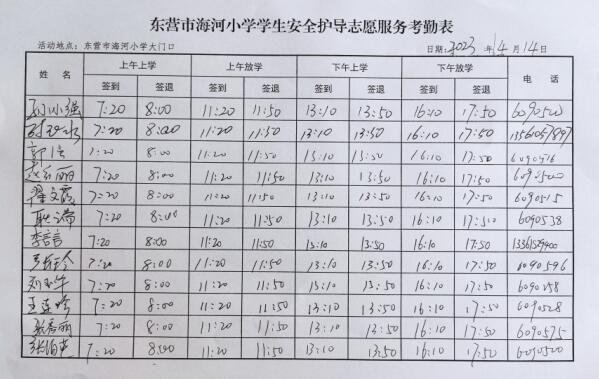 东营市海河小学学生安全护导志愿服务考勤表
活动地点：东营市海河小学大门口 日期：2023 年 4 月 14 日
姓 名 上午上学 上午放学 下午上学 下午放学 电 话
签到 签退 签到 签退 签到 签退 签到 签退
7:20 8:00 11:20 11:50 13:10 13:50 16:10 17:50 6090500
7:20 8:00 11:20 11:50 13:10 13:50 16:10 17:50
7:20 8:00 11:20 11:50 13:10 13:50 16:10 17:50
7:20 8:00 11:20 11:50 13:10 13:50 16:10 17:50 6090500
7:20 8:00 11:20 11:50 13:10 13:50 16:10 17:50 6090515
7:20 8:00 11:20 11:50 13:10 13:50 16:10 17:50 6090538
李言言 7:20 8:00 11:20 11:50 13:10 13:50 16:10 17:50
7:20 8:00 11:20 11:50 13:10 13:50 16:10 17:50 6090596
7:20 8:00 11:20 11:50 13:10 13:50 16:10 17:50 6090558
7:20 8:00 11:20 11:50 13:10 13:50 16:10 17:50 6090528
7:20 8:00 11:20 11:50 13:10 13:50 16:10 17:50 6090575
7:20 8:00 11:20 11:50 13:10 13:50 16:10 17:50 6090500